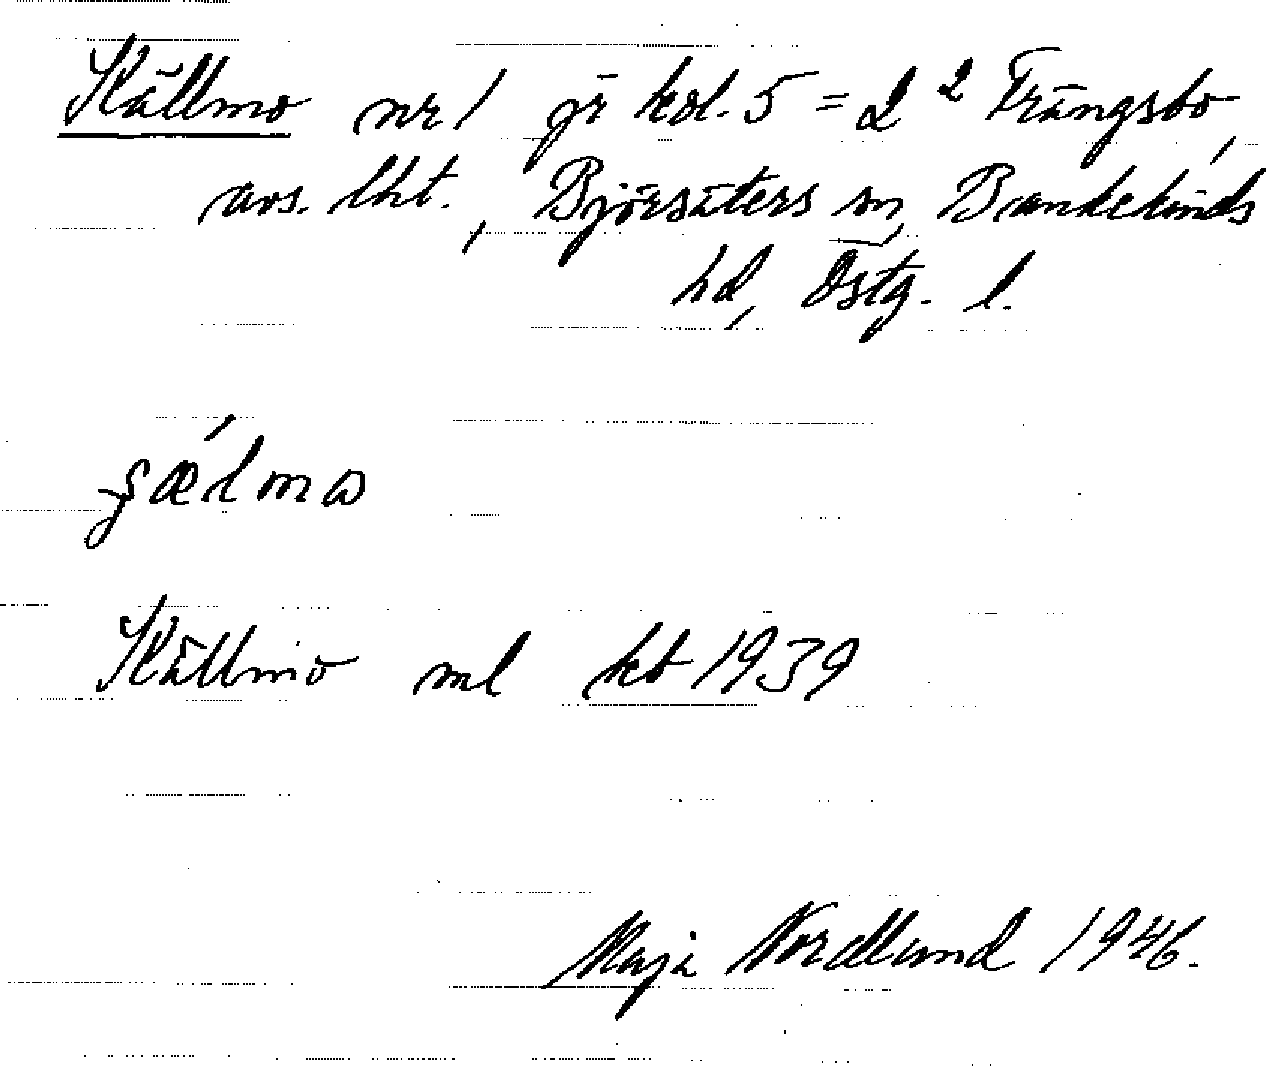 Källmo nr 1 jr kol. 5 = 2 2 Trångsbo,
avs. lht., Björsäters sn, Bankekinds
hd, Östg. l.
Källmo ml kb 1939
Maja Nordlund 1946.